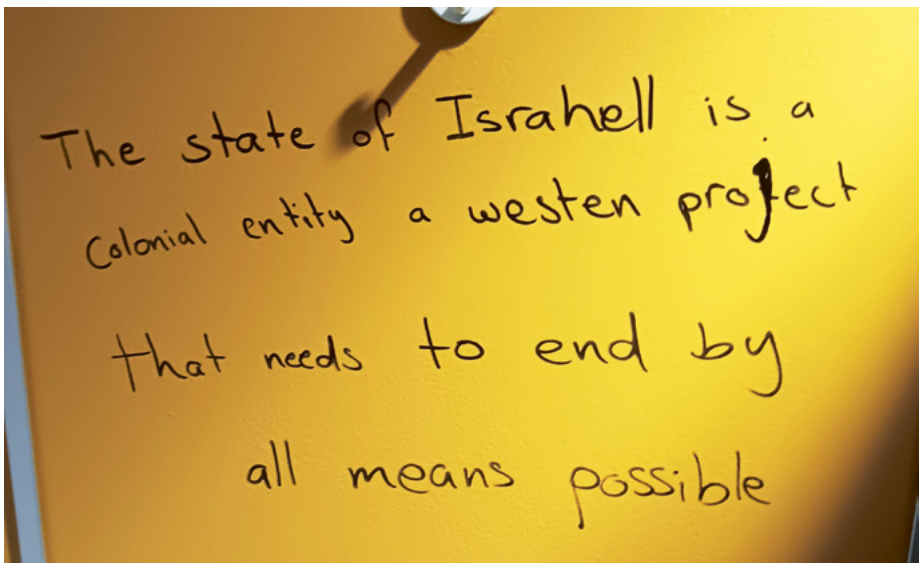 The state of Israhell is a
Colonial entity a westen project
that needs to end by
all means possible